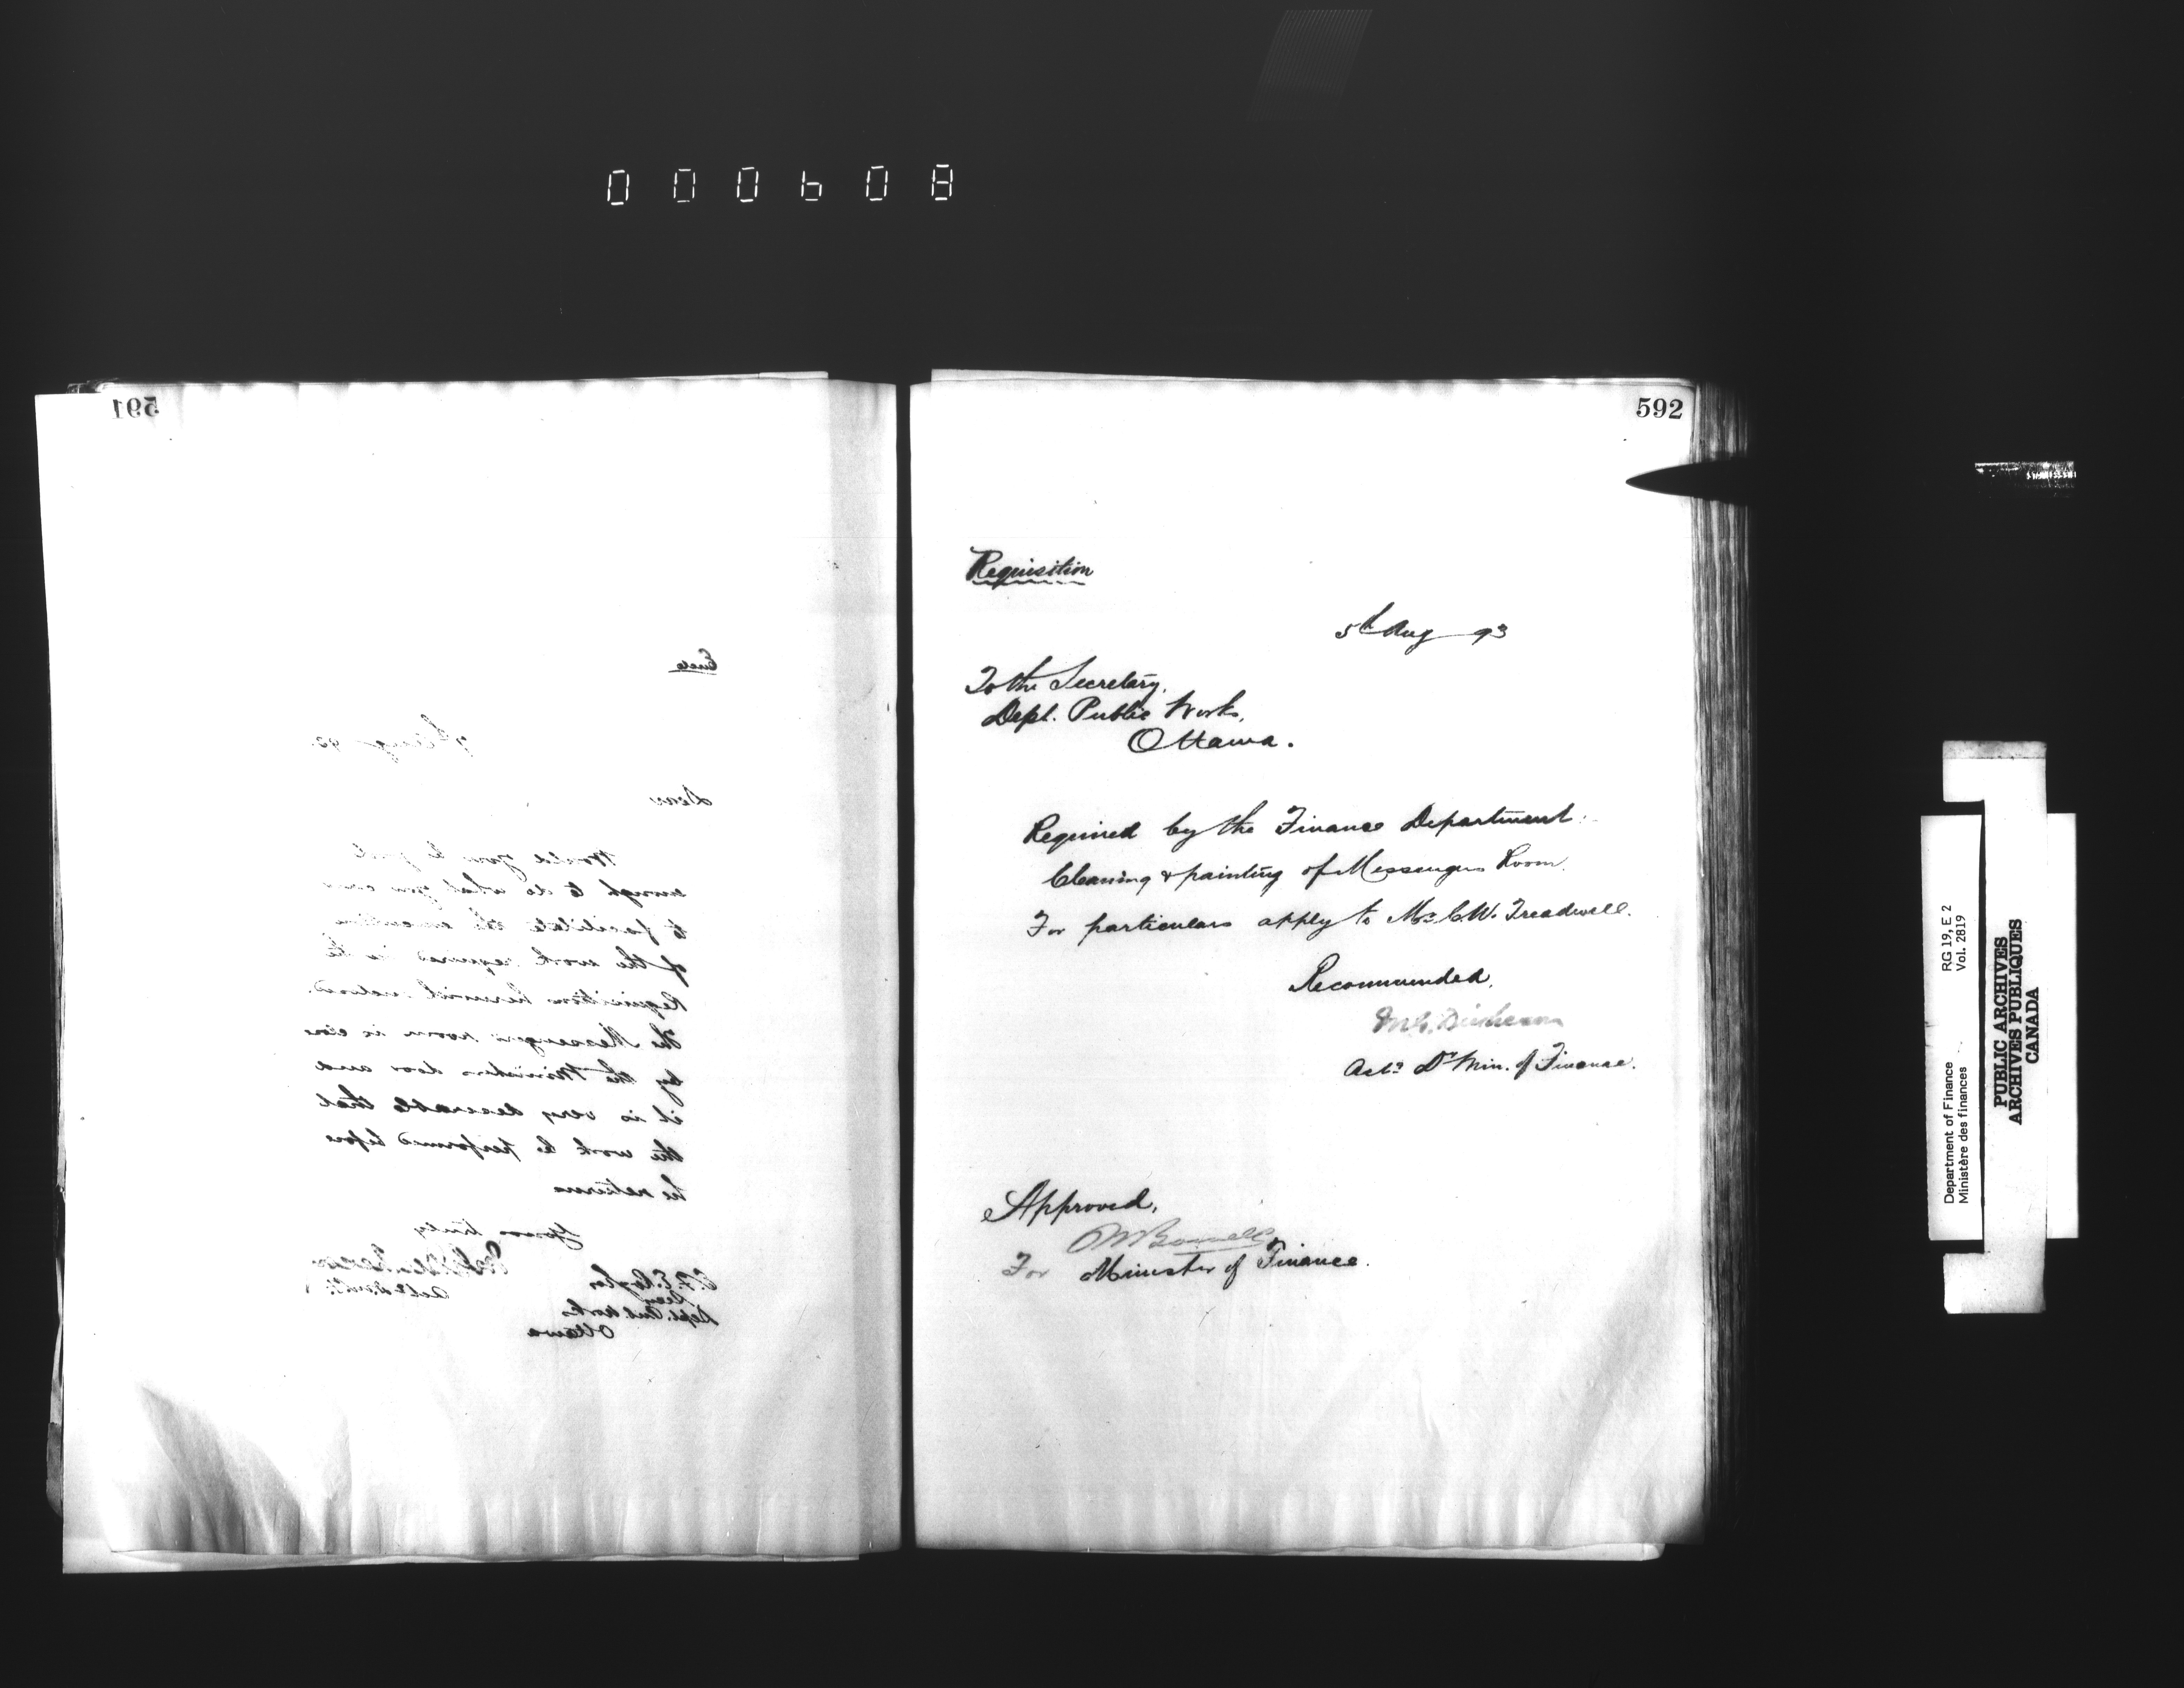 000608
591
Encl
7th Aug 93.
Dear
Would you be good
enough to do what you can
to facilitate the execution
of the work required in the
Requisition herewith enclosed.
The Messengers room is close
by the Ministers door and
it is very desirable that
the work be performed before
he returns
Yours truly
Actg
C. F. E.
Secy
Dept. Pub. Works
Ottawa
592
Requisition
5th Aug 93
To the Secretary,
Dept. Public Works,
Ottawa.
Required by the Finance Department:
Cleaning & painting of Messengers Room.
For particulars apply to Mr C. W. Treadwell.
Recommended,
Actg Dy Min. of Finance.
Approved,
MBowell
For Minister of Finance.
Department of Finance RG 19, E 2
Ministère des finances Vol. 2819
PUBLIC ARCHIVES
ARCHIVES PUBLIQUES
CANADA